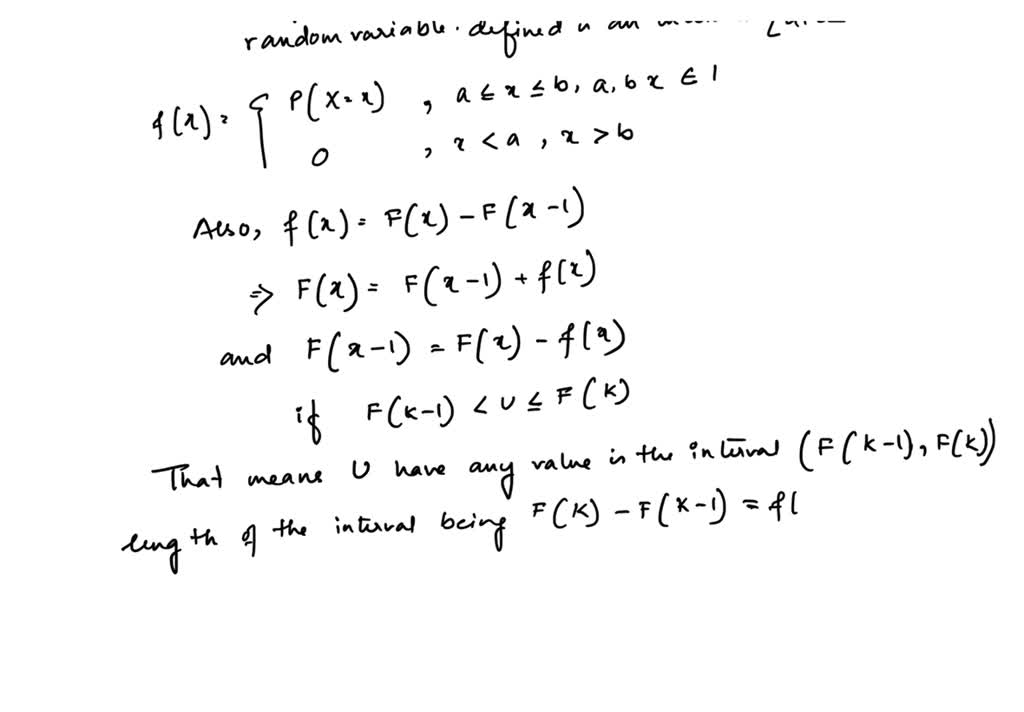 random variable. defined
f(x) = { P(X=x) , a ≤ x ≤ b, a, b x ∈ I
0 , x < a , x > b
Also, f(x) = F(x) - F(x-1)
⇒ F(x) = F(x-1) + f(x)
and F(x-1) = F(x) - f(x)
if F(k-1) < U ≤ F(k)
That means U have any value in the interval (F(k-1), F(k))
length of the interval being F(k) - F(k-1) = f(